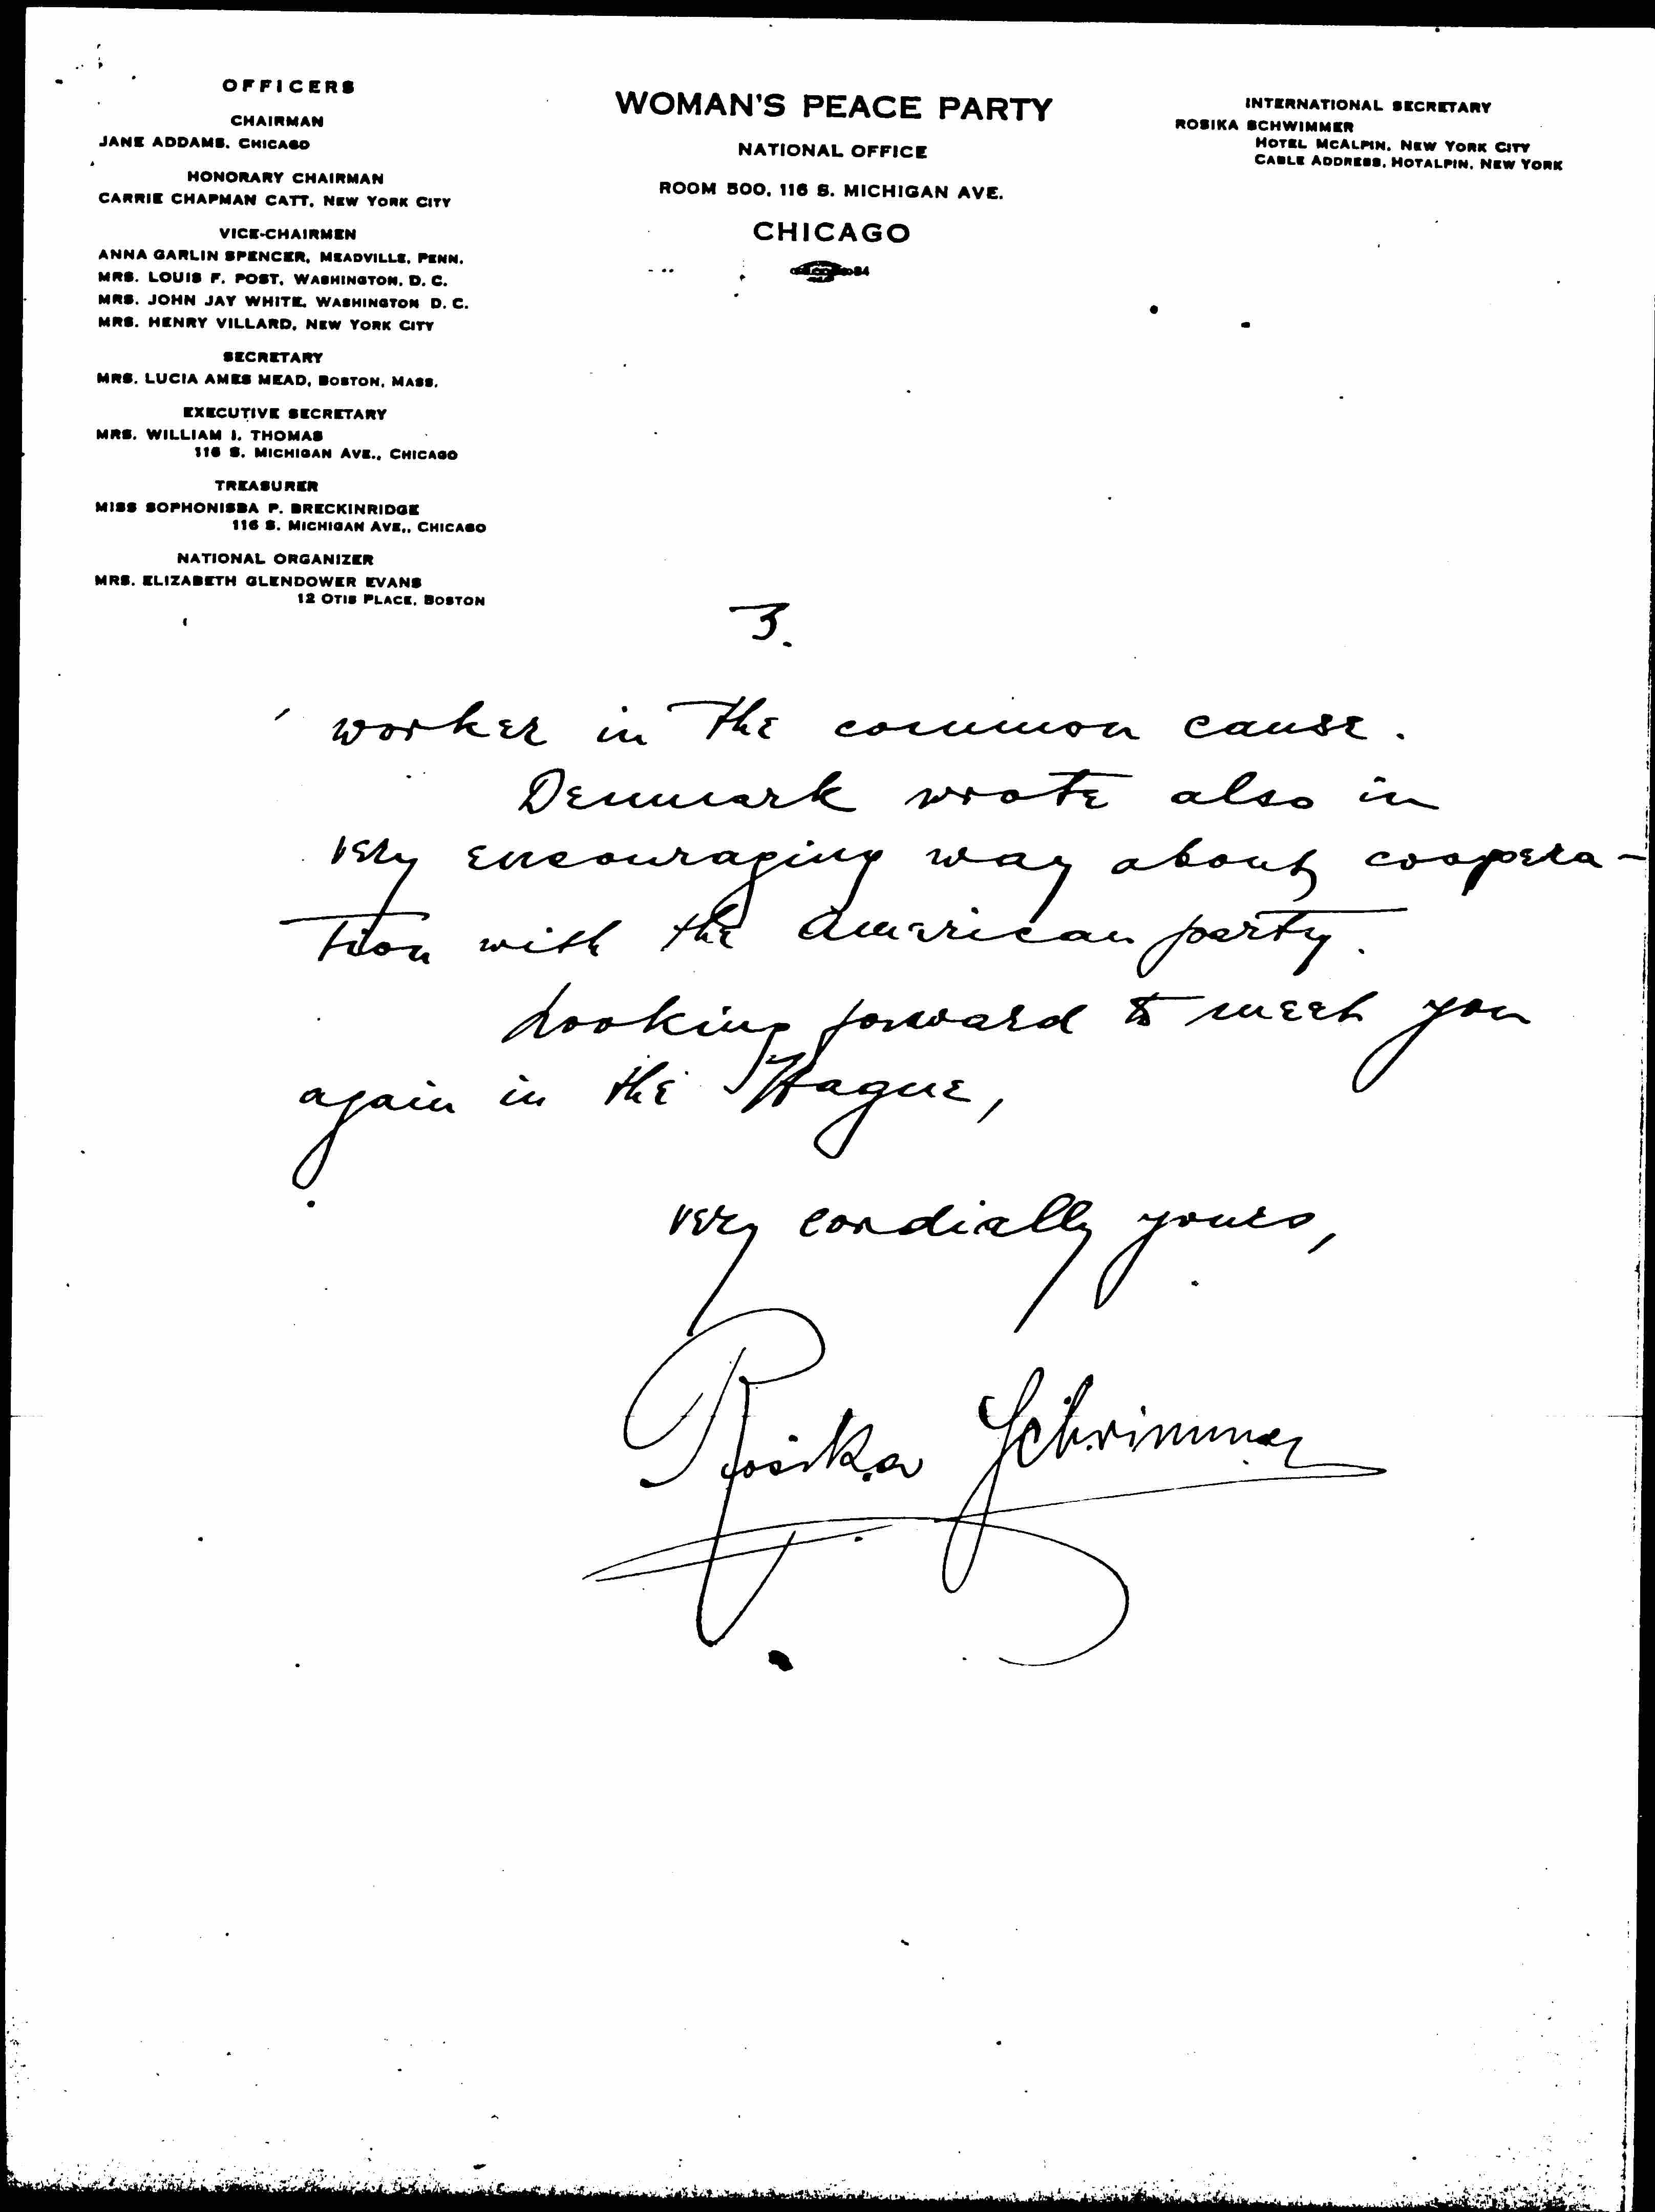 OFFICERS
CHAIRMAN
JANE ADDAMS, CHICAGO
HONORARY CHAIRMAN
CARRIE CHAPMAN CATT, NEW YORK CITY
VICE-CHAIRMEN
ANNA GARLIN SPENCER, MEADVILLE, PENN.
MRS. LOUIS F. POST, WASHINGTON, D. C.
MRS. JOHN JAY WHITE, WASHINGTON D. C.
MRS. HENRY VILLARD, NEW YORK CITY
SECRETARY
MRS. LUCIA AMES MEAD, BOSTON, MASS.
EXECUTIVE SECRETARY
MRS. WILLIAM I. THOMAS
116 S. MICHIGAN AVE., CHICAGO
TREASURER
MISS SOPHONISBA P. BRECKINRIDGE
116 S. MICHIGAN AVE., CHICAGO
NATIONAL ORGANIZER
MRS. ELIZABETH GLENDOWER EVANS
12 OTIS PLACE, BOSTON
WOMAN'S PEACE PARTY
NATIONAL OFFICE
ROOM 500, 116 S. MICHIGAN AVE.
CHICAGO
84
INTERNATIONAL SECRETARY
ROSIKA SCHWIMMER
HOTEL MCALPIN, NEW YORK CITY
CABLE ADDRESS, HOTALPIN, NEW YORK
3.
worker in the common cause.
Denmark wrote also in
very encouraging way about coopera-
tion with the American party.
Looking forward to meet you
again in the Hague,
very cordially yours,
Rosika Schwimmer